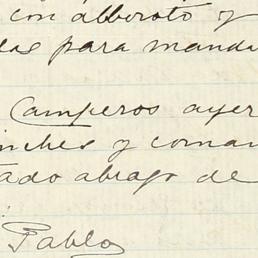 con alboroto y
para manda
Camperos ayer
nches y coman
tado abrazo de
Pablo